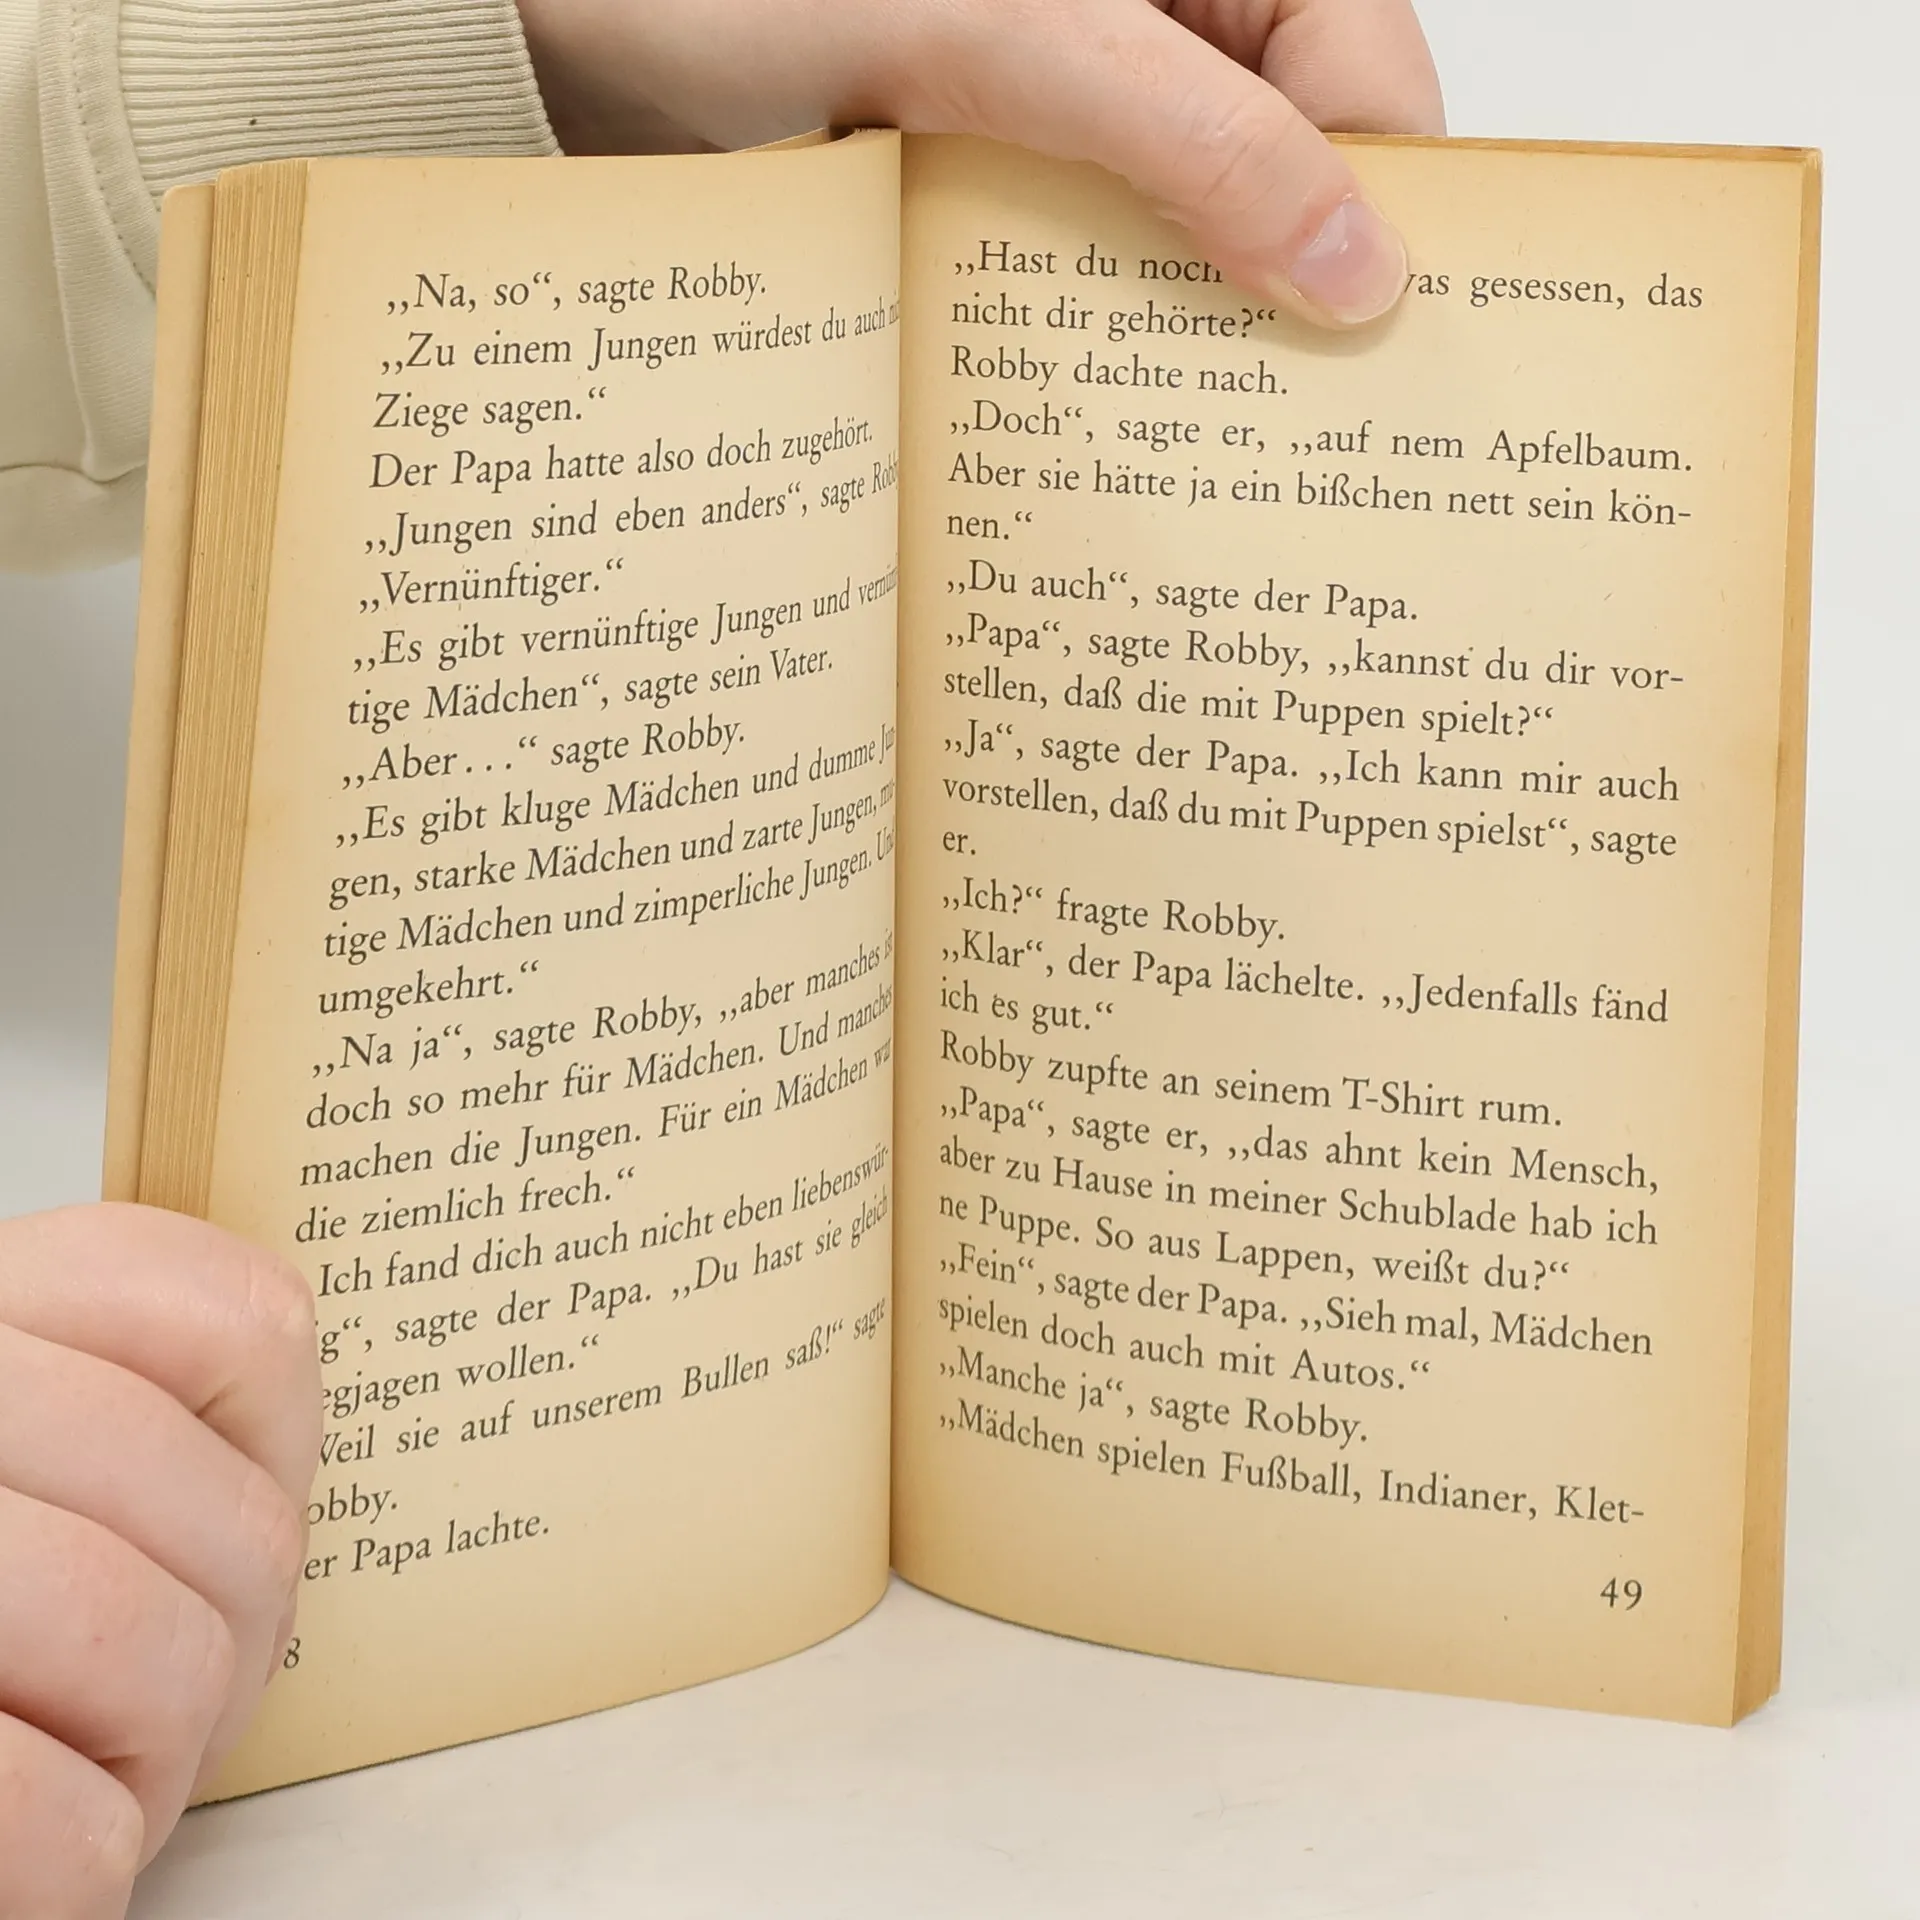 ,,Na, so“, sagte Robby.
,,Zu einem Jungen würdest du auch
Ziege sagen.“
Der Papa hatte also doch zugehört.
,,Jungen sind eben anders“, sagte
,,Vernünftiger.“
,,Es gibt vernünftige Jungen und
tige Mädchen“, sagte sein Vater.
,,Aber...“ sagte Robby.
,,Es gibt kluge Mädchen und dumme Jun-
gen, starke Mädchen und zarte Jungen,
tige Mädchen und zimperliche Jungen. Und
umgekehrt.“
,,Na ja“, sagte Robby, ,,aber manches ist
doch so mehr für Mädchen. Und manches
machen die Jungen. Für ein Mädchen war
die ziemlich frech.“
Ich fand dich auch nicht eben liebenswür-
g“, sagte der Papa. ,,Du hast sie gleich
egjagen wollen.“
Weil sie auf unserem Bullen saß!“ sagte
obby.
er Papa lachte.
8
,,Hast du noch gesessen, das
nicht dir gehörte?“
Robby dachte nach.
,,Doch“, sagte er, ,,auf nem Apfelbaum.
Aber sie hätte ja ein bißchen nett sein kön-
nen.“
,,Du auch“, sagte der Papa.
,,Papa“, sagte Robby, ,,kannst du dir vor-
stellen, daß die mit Puppen spielt?“
,,Ja“, sagte der Papa. ,,Ich kann mir auch
vorstellen, daß du mit Puppen spielst“, sagte
er.
,,Ich?“ fragte Robby.
,,Klar“, der Papa lächelte. ,,Jedenfalls fänd
ich es gut.“
Robby zupfte an seinem T-Shirt rum.
,,Papa“, sagte er, ,,das ahnt kein Mensch,
aber zu Hause in meiner Schublade hab ich
ne Puppe. So aus Lappen, weißt du?“
,,Fein“, sagte der Papa. ,,Sieh mal, Mädchen
spielen doch auch mit Autos.“
,,Manche ja“, sagte Robby.
,,Mädchen spielen Fußball, Indianer, Klet-
49